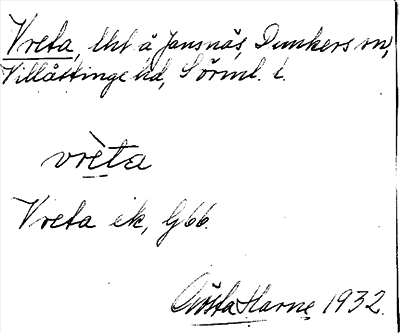 Vreta, lht å Jansnäs, Dunkers sn,
Villåttinge hd, Sörml. l.
vrèta
Vreta ek, G66.
Gösta Harne 1932.